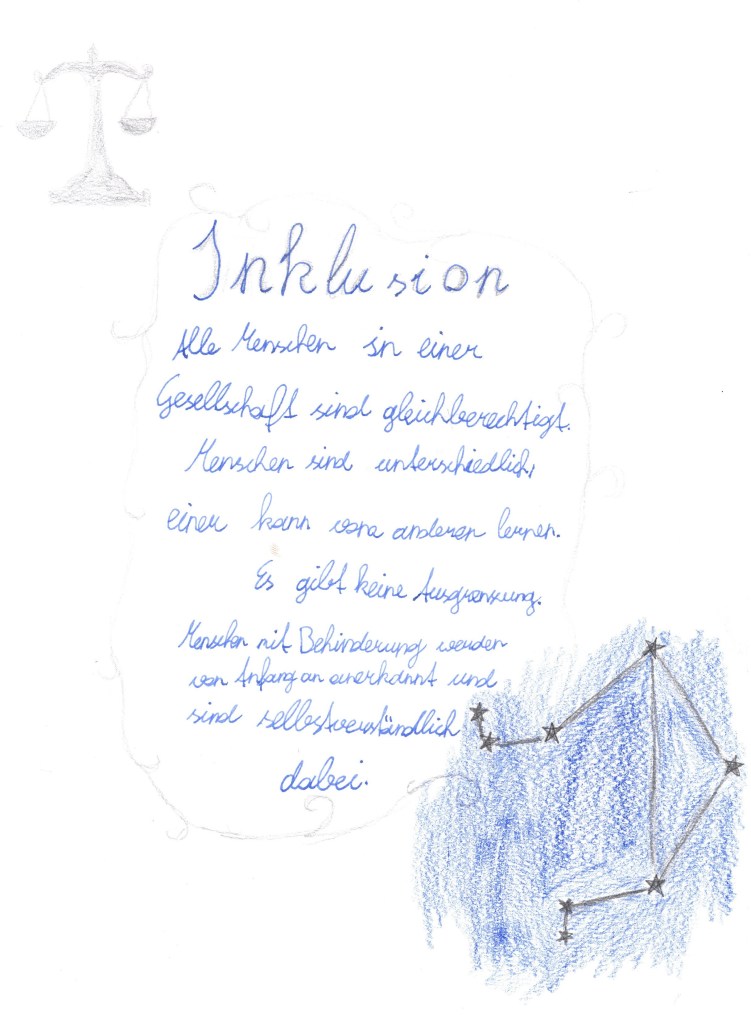 Inklusion
Alle Menschen in einer
Gesellschaft sind gleichberechtigt.
Menschen sind unterschiedlich,
einer kann vom anderen lernen.
Es gibt keine Ausgrenzung.
Menschen mit Behinderung werden
von Anfang an anerkannt und
sind selbstverständlich
dabei.